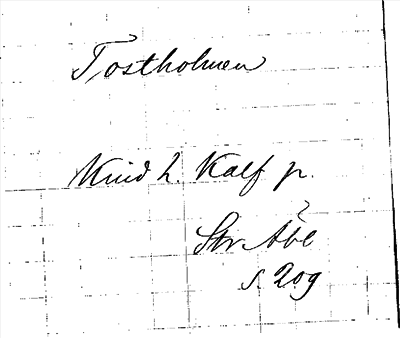 Tostholmen
Knud h. Kalf p.
Str Åbl
s. 209